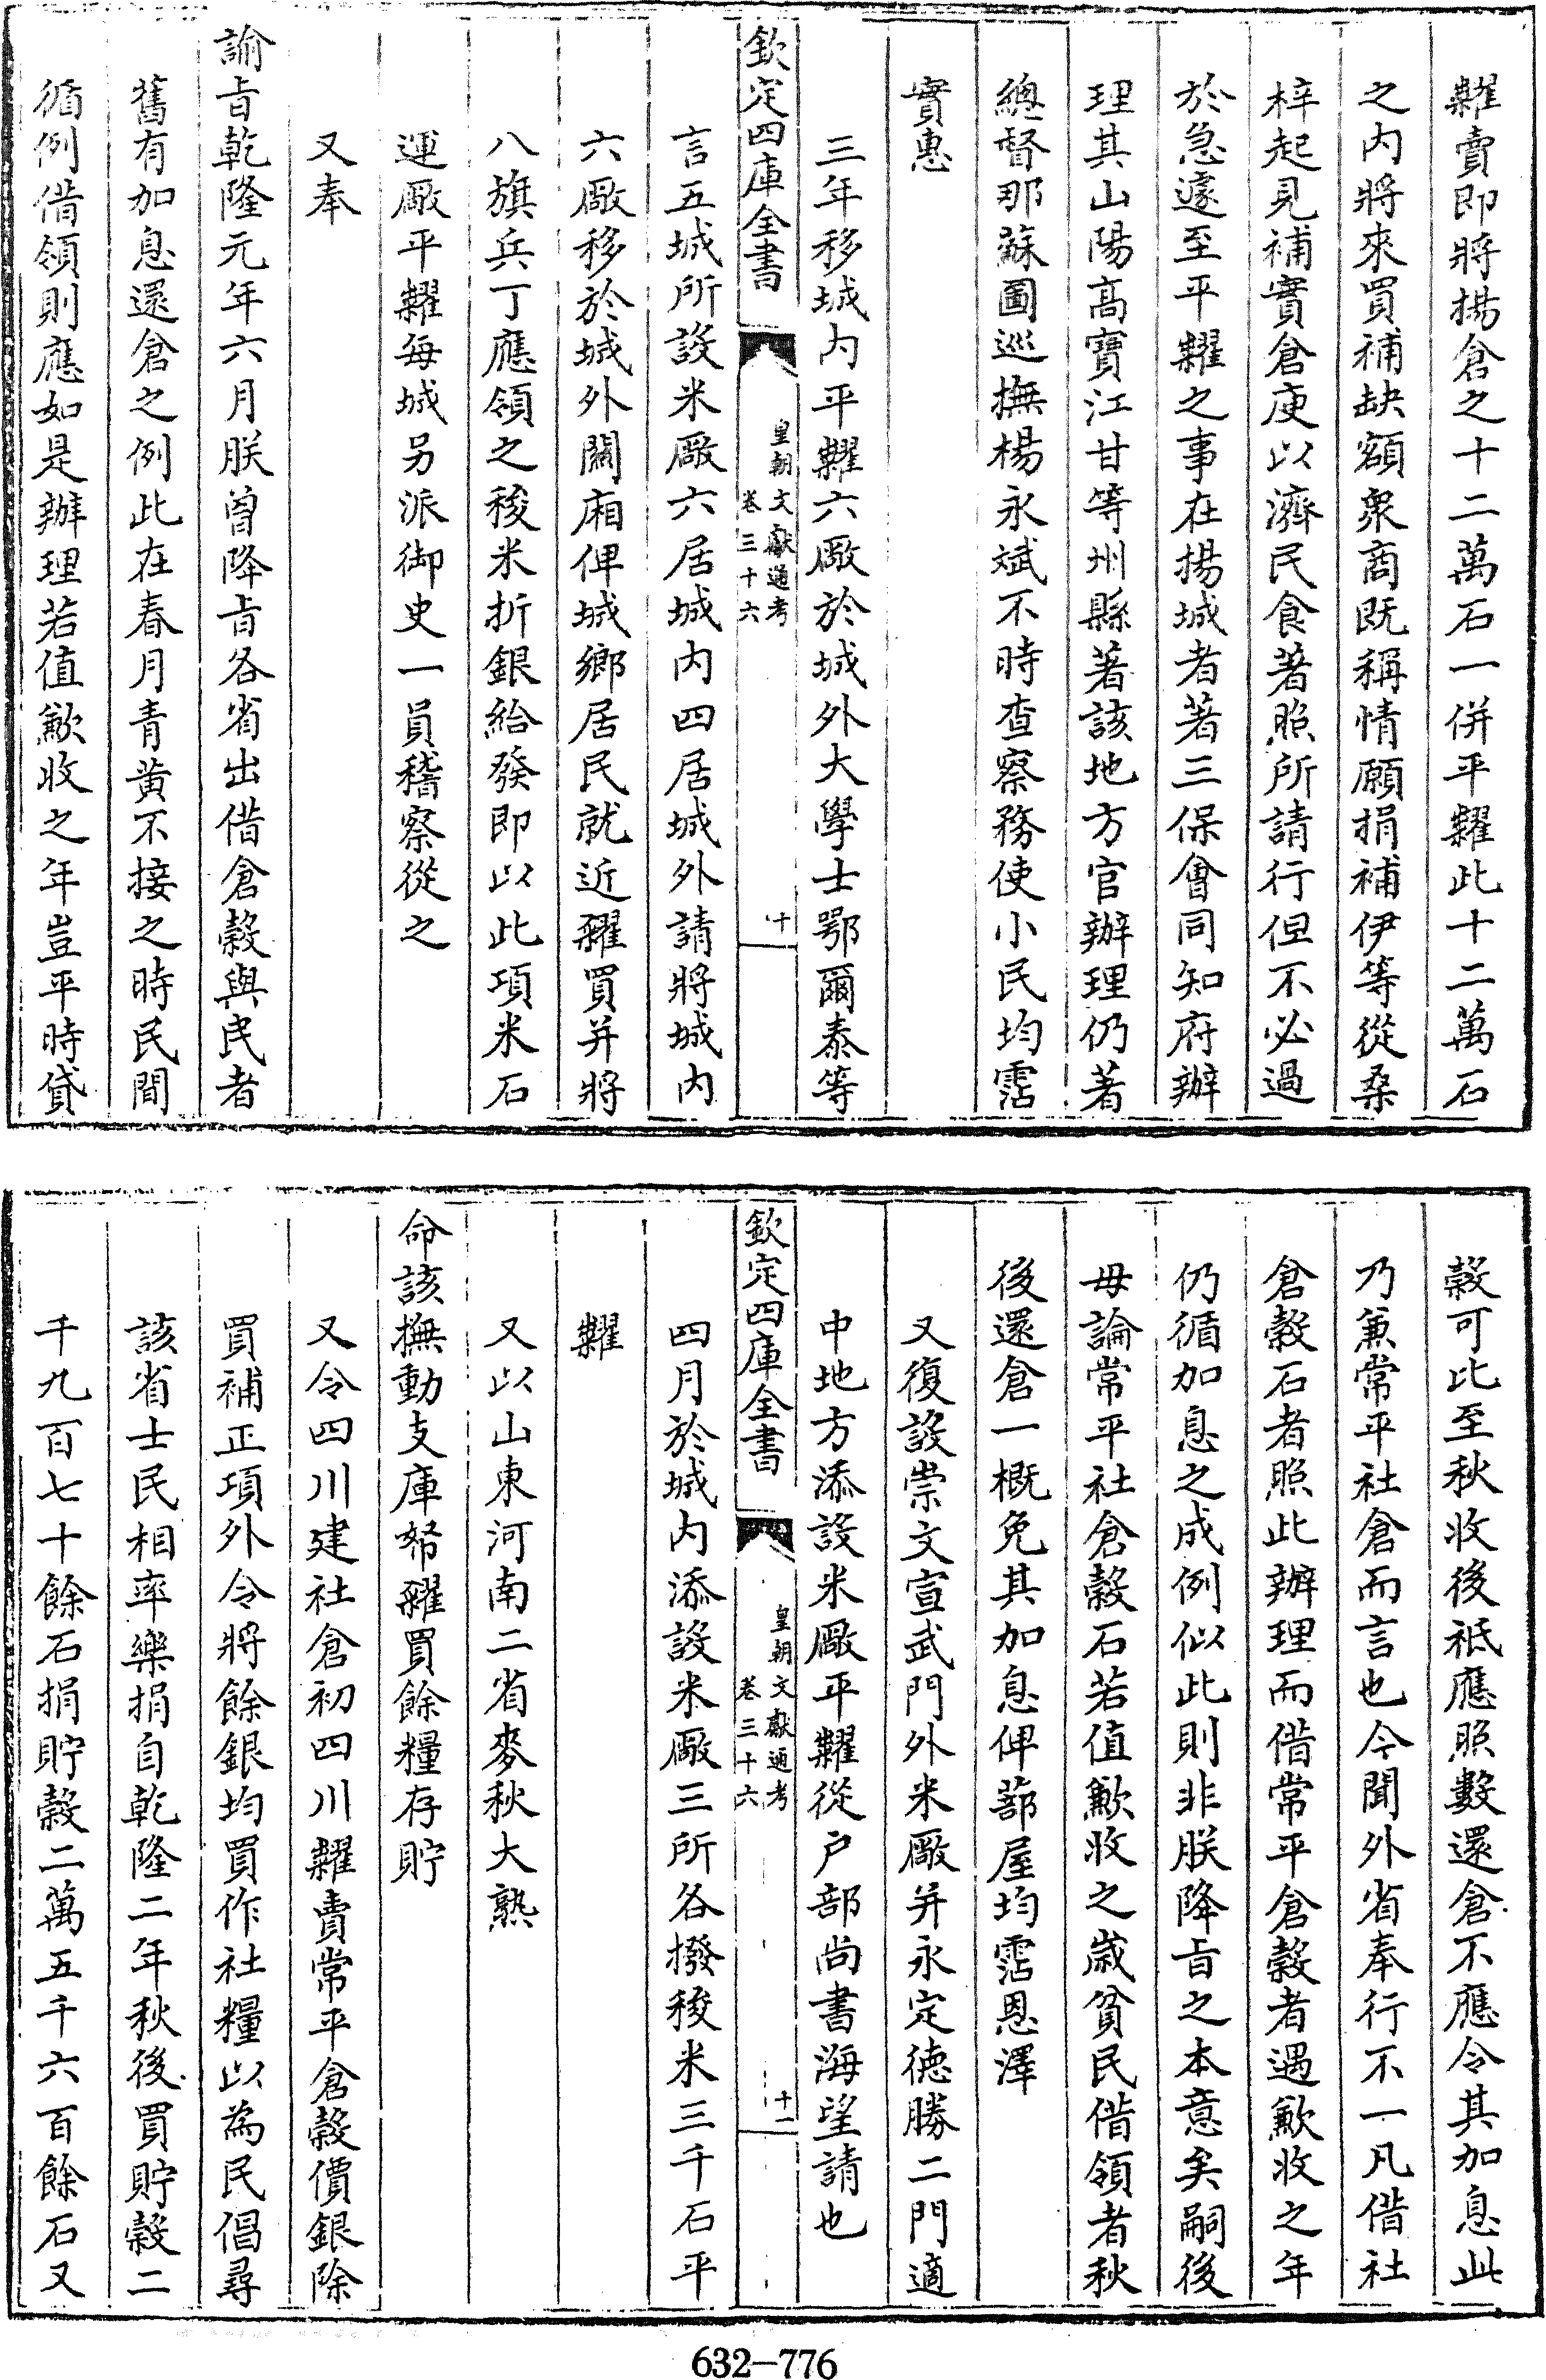 糶賣即將揚倉之十二萬石一併平糶此十二萬石
之内將來買補缺額衆商既稱情願捐補伊等從桑
梓起見補實倉庾以濟民食著照所請行但不必過
於急遽至平糶之事在揚城者著三保會同知府辦
理其山陽高寶江甘等州縣著該地方官辦理仍著
總督那蘇圖巡撫楊永斌不時查察務使小民均霑
實惠
三年移城内平糶六厰於城外大學士鄂爾泰等
欽定四庫全書
皇朝文獻通考
卷三十六
十
言五城所設米厰六居城内四居城外請將城内
六厰移於城外關廂俾城鄉居民就近糴買并將
八旗兵丁應領之稜米折銀給發即以此項米石
運厰平糶每城另派御史一員稽察從之
又奉
諭旨乾隆元年六月朕曾降旨各省出借倉穀與民者
舊有加息還倉之例此在春月青黄不接之時民間
循例借領則應如是辦理若值歉收之年豈平時貸
穀可比至秋收後祗應照數還倉不應令其加息此
乃兼常平社倉而言也今聞外省奉行不一凡借社
倉穀石者照此辦理而借常平倉穀者遇歉收之年
仍循加息之成例似此則非朕降旨之本意矣嗣後
毋論常平社倉穀石若值歉收之歲貧民借領者秋
後還倉一概免其加息俾蔀屋均霑恩澤
又復設崇文宣武門外米厰并永定德勝二門適
中地方添設米厰平糶從户部尚書海望請也
欽定四庫全書
皇朝文獻通考
卷三十六
十一
四月於城内添設米厰三所各撥稜米三千石平
糶
又以山東河南二省麥秋大熟
命該撫動支庫帑糴買餘糧存貯
又令四川建社倉初四川糶賣常平倉穀價銀除
買補正項外令將餘銀均買作社糧以為民倡尋
該省士民相率樂捐自乾隆二年秋後買貯穀二
千九百七十餘石捐貯穀二萬五千六百餘石又
632-776